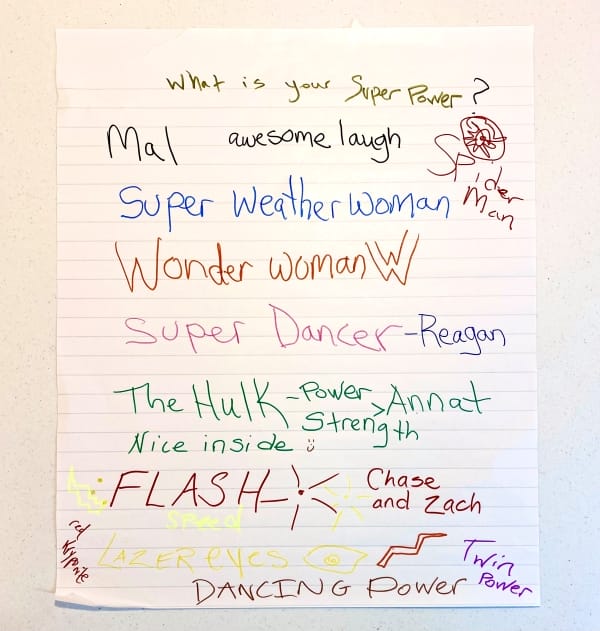 What is your Super Power?
Mal awesome laugh
Spider
Man
Super Weather Woman
Wonder woman W
Super Dancer - Reagan
The Hulk - Power > Annat
Strength
Nice inside :)
FLASH - Chase
and Zach
Speed
red
LAZER eyes
Twin
Power
DANCING Power